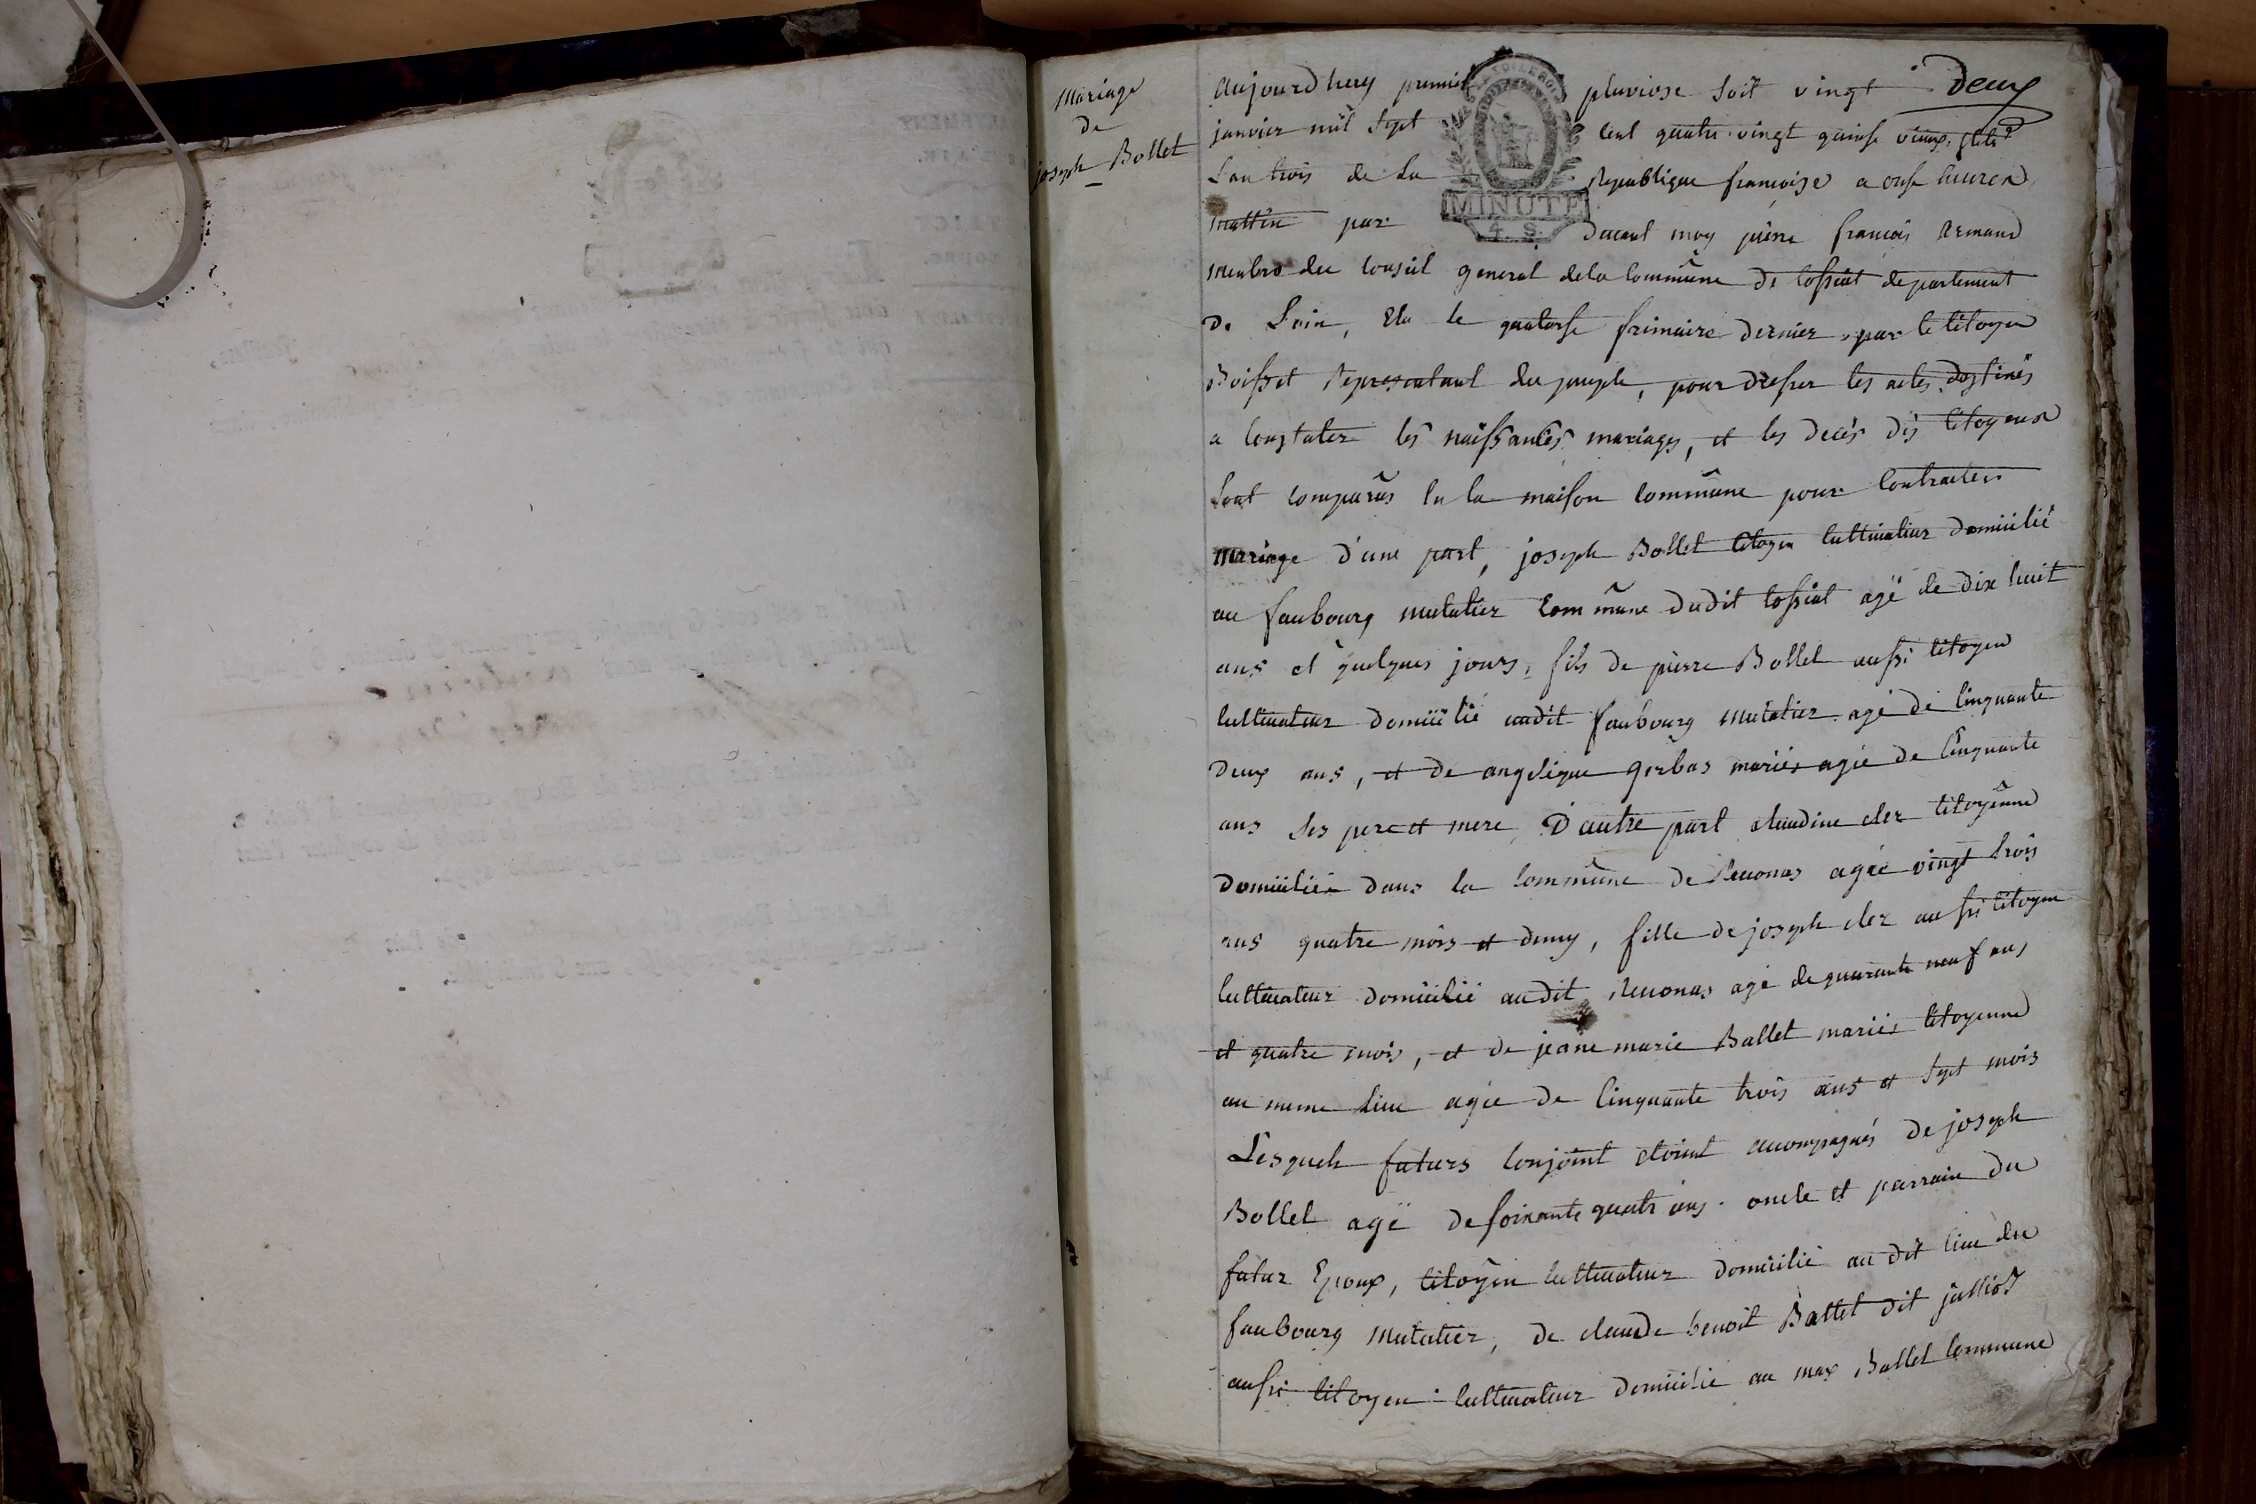 Mariage
de
joseph Bollet
aujourdhuy premier pluviose soit vingt Deux
janvier mil sept cent quatre vingt quinse vieux stile
Lan trois de La Republique françoise a onse heures
mattin par devant moy pierre francois Armand
membre du conseil general dela commûne de Cossiat departement
de Lain, Elu le quatorse frimaire dernier par le citoyen
Boisset Representant du peuple, pour dresser les actes destinés
a constater les naissances mariages, et les decès des citoyens
sont comparûs en la maison commûne pour contracter
mariage d'une part, joseph Bollet citoyen cultivateur domicilié
au faubourg mutatier commûne dudit Cossiat agé de dix huit
ans et quelques jours, fils de pierre Bollet aussi citoyen
cultivateur domicilié audit faubourg mutatier agé de cinquante
deux ans, et de angelique gerbas mariés agée de cinquante
ans ses pere et mere, D'autre part claudine cler citoyënne
domiciliée dans la commûne de Revonas agée vingt trois
ans quatre mois et demy, fille de joseph cler aussi citoyen
cultivateur domicilié audit Revonas agé de quarante neuf ans
et quatre mois, et de jeane marie Ballet mariés citoyenne
au meme lieu agée de cinquante trois ans et sept mois
Lesquels futurs conjoint etoint accompagnés de joseph
Bollet agé de soixante quatr ans oncle et parrain du
futur Epoux, citoyen cultivateur domicilié au dit lieu du
faubourg Mutatier, de claude benoit Ballet dit julliod
aussi citoyen cultivateur domicilié au max Ballet commune
MINUTE
4. S.